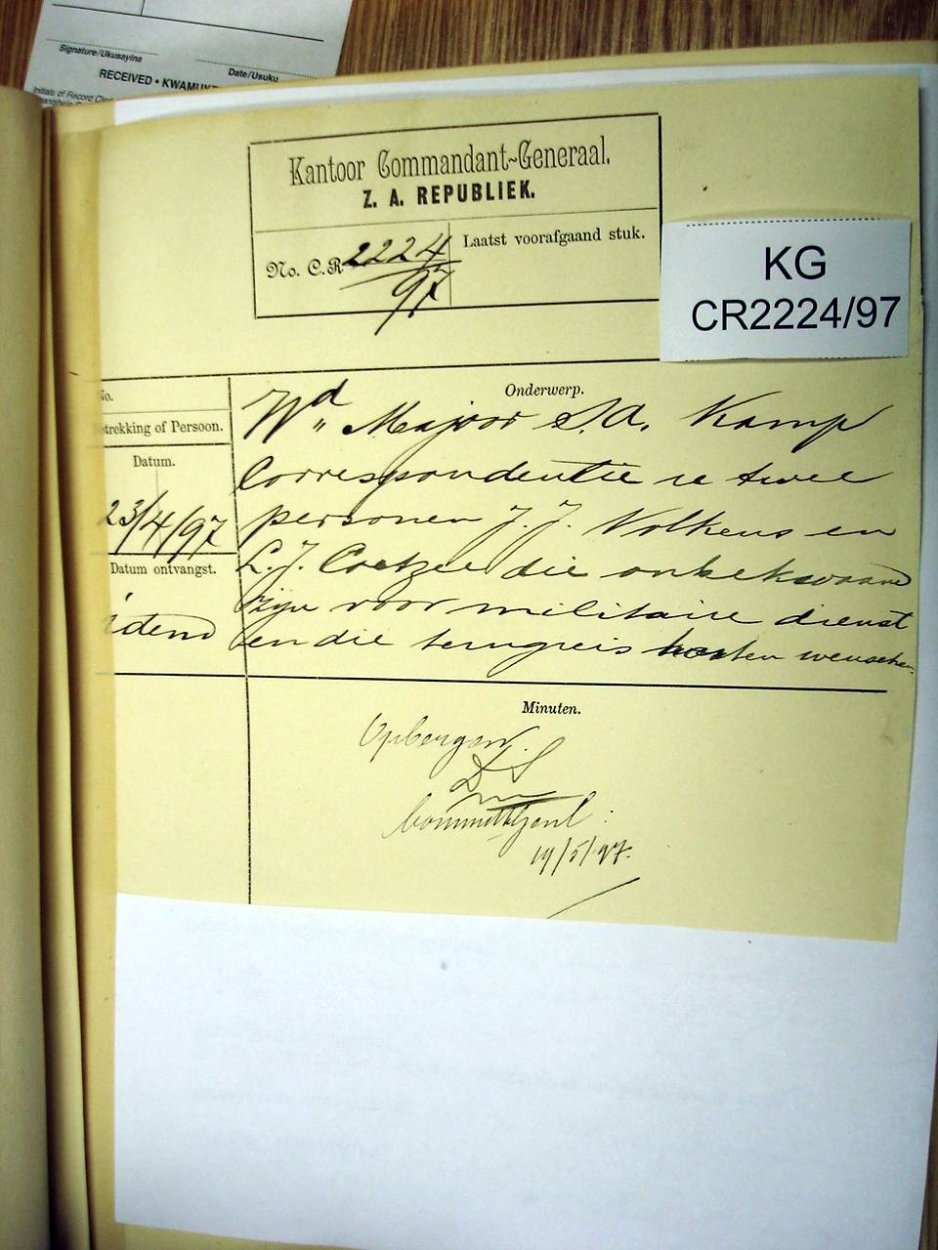 Signature/Ukusayina
Date/Usuku
RECEIVED • KWAMUKE
Initials of Record
Kantoor Commandant-Generaal.
Z. A. REPUBLIEK.
No. C.R. 2224/97
Laatst voorafgaand stuk.
KG
CR2224/97
No.
etrekking of Persoon.
Datum.
23/4/97
Datum ontvangst.
idem
Onderwerp.
Wd Majoor S.A. Kamp
Correspondentie re twee
personen J. J. Volkens en
L. J. Coetzee die onbekwaam
zijn voor militaire dienst
en die terugreis kosten wensche
Minuten.
Opbergen.
Commdt Genl:
19/5/97.